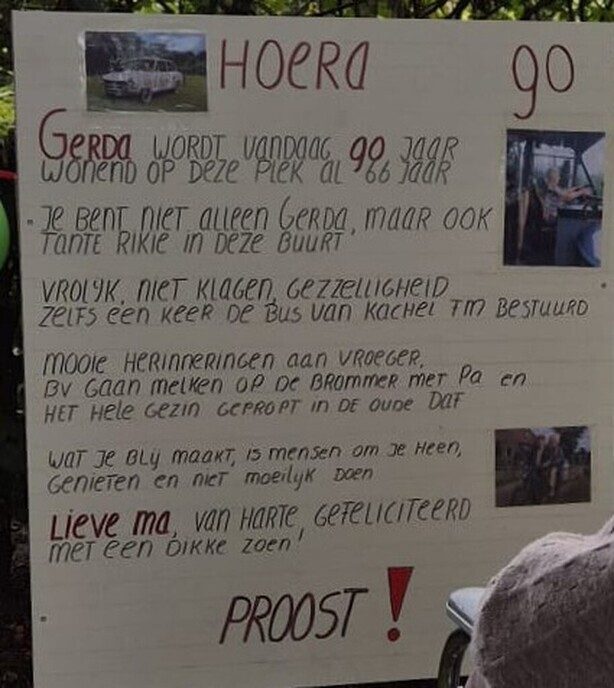 HOERA 90
GERDA WORDT VANDAAG 90 JAAR
WONEND OP DEZE PLEK AL 66 JAAR
JE BENT NIET ALLEEN GERDA, MAAR OOK
TANTE RIKIE IN DEZE BUURT
VROLIJK, NIET KLAGEN, GEZZELLIGHEID
ZELFS EEN KEER DE BUS VAN KACHEL TM BESTUURD
MOOIE HERINNERINGEN AAN VROEGER,
BV GAAN MELKEN OP DE BROMMER MET PA EN
HET HELE GEZIN GEPROPT IN DE OUDE DAF
WAT JE BLIJ MAAKT, IS MENSEN OM JE HEEN,
GENIETEN EN NIET MOEILIJK DOEN
LIEVE MA, VAN HARTE GEFELICITEERD
MET EEN DIKKE ZOEN!
PROOST!